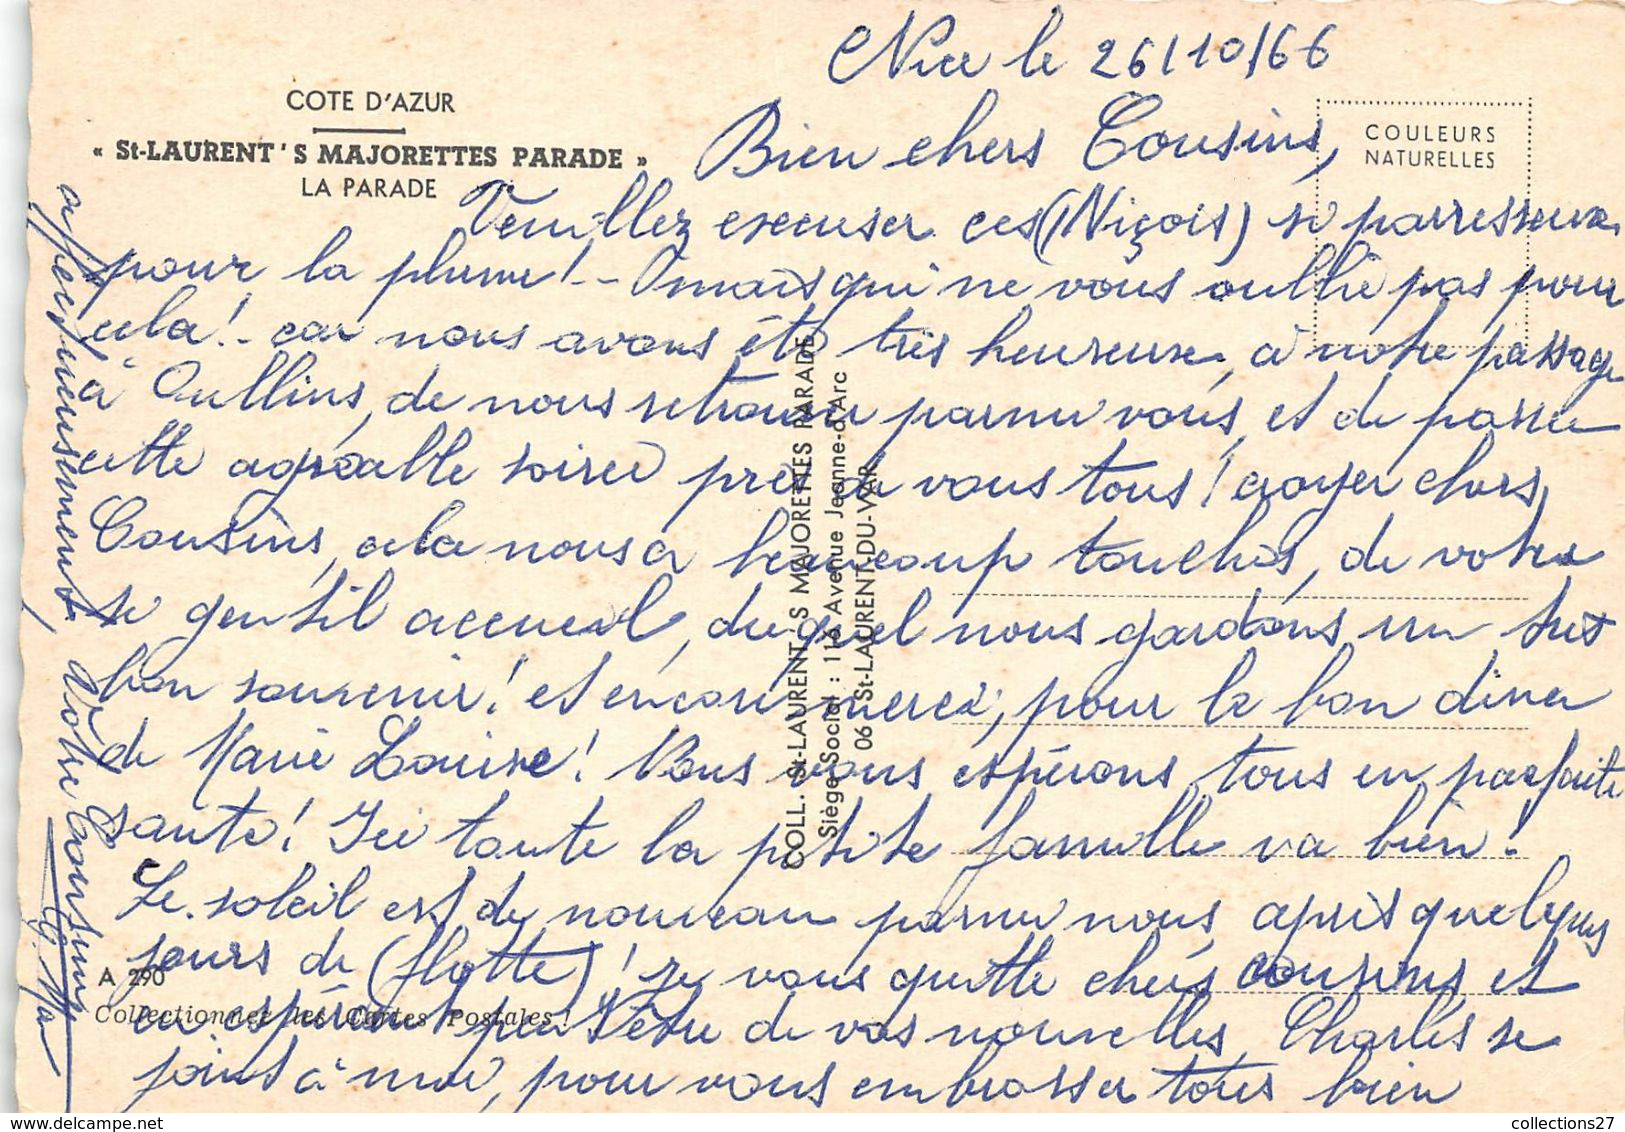 COTE D'AZUR
« St-LAURENT'S MAJORETTES PARADE »
LA PARADE
COULEURS
NATURELLES
Nice le 26/10/66
Bien chers Cousins,
Veuillez excuser ces (Niçois) si parresseux
pour la plume! - mais qui ne vous oublie pas pour
cela! - car nous avons été très heureuse, à notre passage
à Oullins, de nous retrouver parmi vous, et de passer
cette agréable soirée près de vous tous! croyer chers
Cousins, cela nous a beaucoup touchés, de votre
si gentil accueil, duquel nous gardons un très
bon souvenir! et encore merci, pour le bon diner
de Marie Louise! Nous vous espérons tous en parfaite
santé! Ici toute la petite famille va bien!
Le soleil est de nouveau parmi nous, après quelques
jours de (flotte)! je vous quitte chers cousins, et
en espérant lire de vos nouvelles, Charles se
joint à moi, pour vous embrasser tous bien
affectueusement, Votre Cousine
COLL. St-LAURENT'S MAJORETTES PARADE
Siège Social : 116 Avenue Jeanne-d'Arc
06 St-LAURENT-DU-VAR
A 290
Collectionnez les Cartes Postales !
collections27